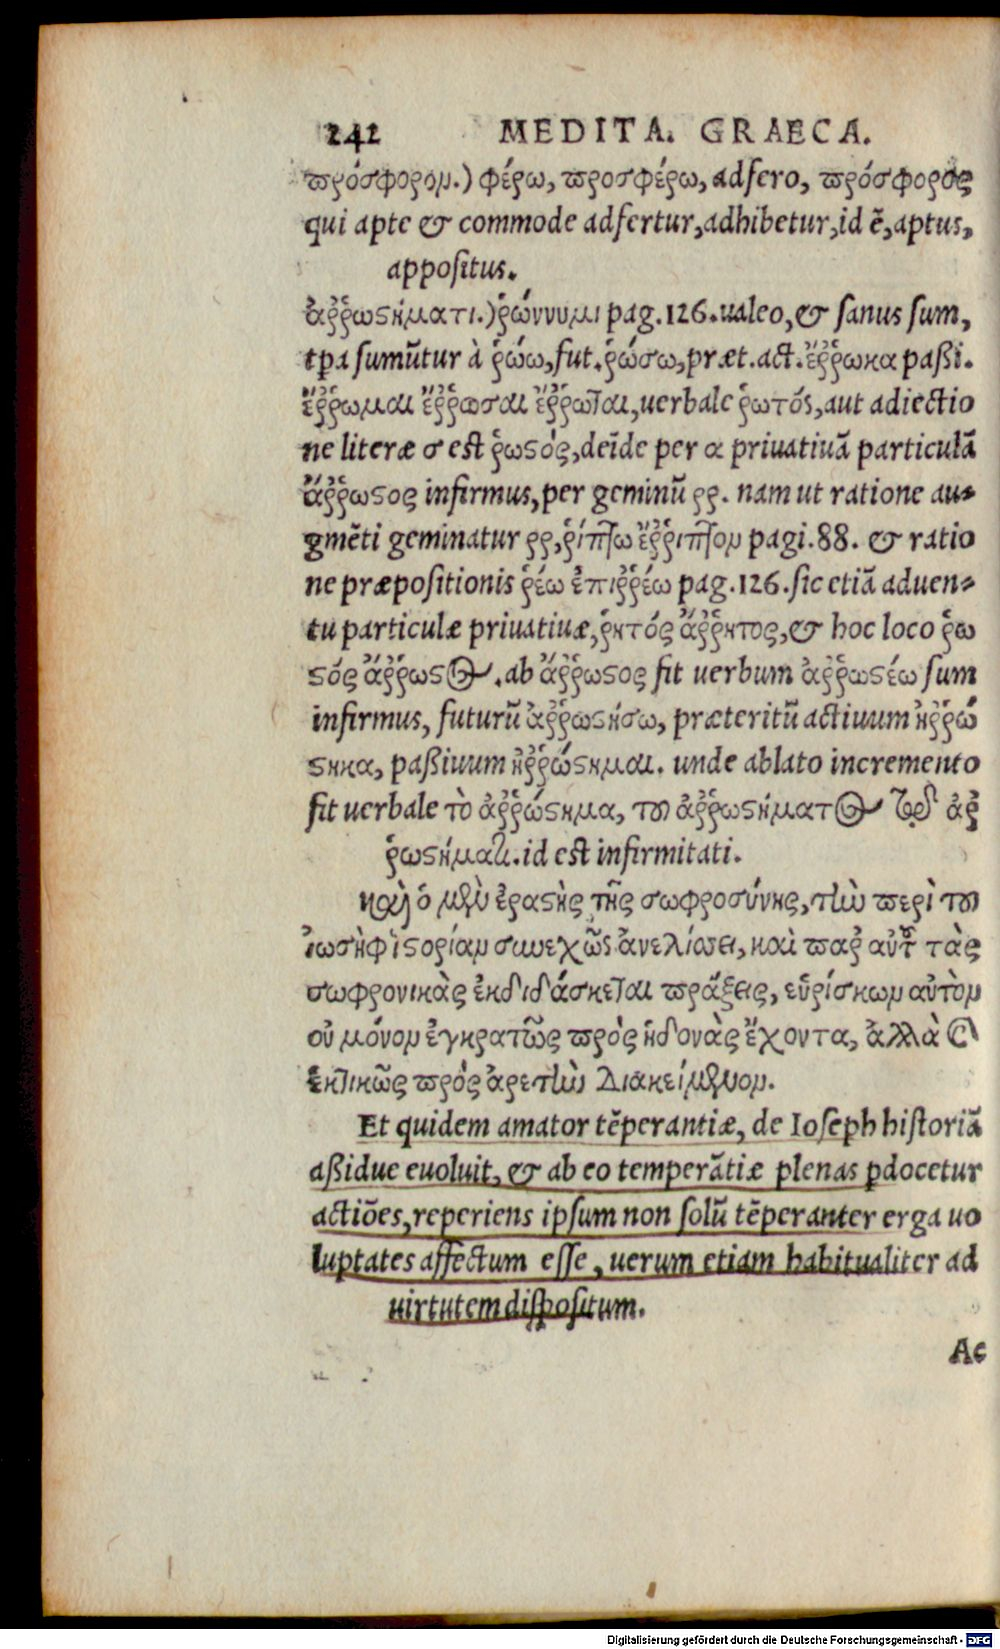 242 MEDITA. GRAECA.
πρόσφορον.) φέρω, προσφέρω, adfero, πρόσφορος
qui apte & commode adfertur, adhibetur, id ẽ, aptus,
appositus.
ἀῤῥωστήματι.) ῥώννυμι pag. 126. ualeo, & sanus sum,
tpa sumũtur à ῥώω, fut. ῥώσω, præt. act. ἔῤῥωκα paßi.
ἔῤῥωμαι ἔῤῥωσαι ἔῤῥωται, uerbale ῥωτός, aut adiectio
ne literæ σ est ῥωστὸς, deĩde per α priuatiuã particulã
ἄῤῥωστος infirmus, per geminũ ρρ. nam ut ratione au-
gmẽti geminatur ρρ, ῥίπτω ἔῤῥιπτον pagi. 88. & ratio
ne præpositionis ῥέω ἐπιῤῥέω pag. 126. sic etiã aduen-
tu particulæ priuatiuæ, ῥητός ἄῤῥητος, & hoc loco ῥω
στός ἄῤῥωστος. ab ἄῤῥωστος fit uerbum ἀῤῥωστέω sum
infirmus, futurũ ἀῤῥωστήσω, præteritũ actiuum ἠῤῥώ
στηκα, paßiuum ἠῤῥώστημαι. unde ablato incremento
fit uerbale τὸ ἀῤῥώστημα, του ἀῤῥωστήματος τῷ ἀῤ
ῥωστήματι. id est infirmitati.
καὶ ὁ μὲν ἐραστὴς τῆς σωφροσύνης, τὴν περὶ του
ἰωσὴφ ἱστορίαν συνεχῶς ἀνελίσσει, καὶ παρ αὐτοῦ τὰς
σωφρονικὰς ἐκδιδάσκεται πράξεις, εὑρίσκων αὐτὸν
οὐ μόνον ἐγκρατῶς πρὸς ἡδονὰς ἔχοντα, ἀλλὰ καὶ
ἑκτικῶς πρός ἀρετὴν διακείμενον.
Et quidem amator tẽperantiæ, de Ioseph historiã
aßidue euoluit, & ab eo temperãtiæ plenas pdocetur
actiões, reperiens ipsum non solũ tẽperanter erga uo
luptates affectum esse, uerum etiam habitualiter ad
uirtutem dispositum.
Ac
Digitalisierung gefördert durch die Deutsche Forschungsgemeinschaft - DFG